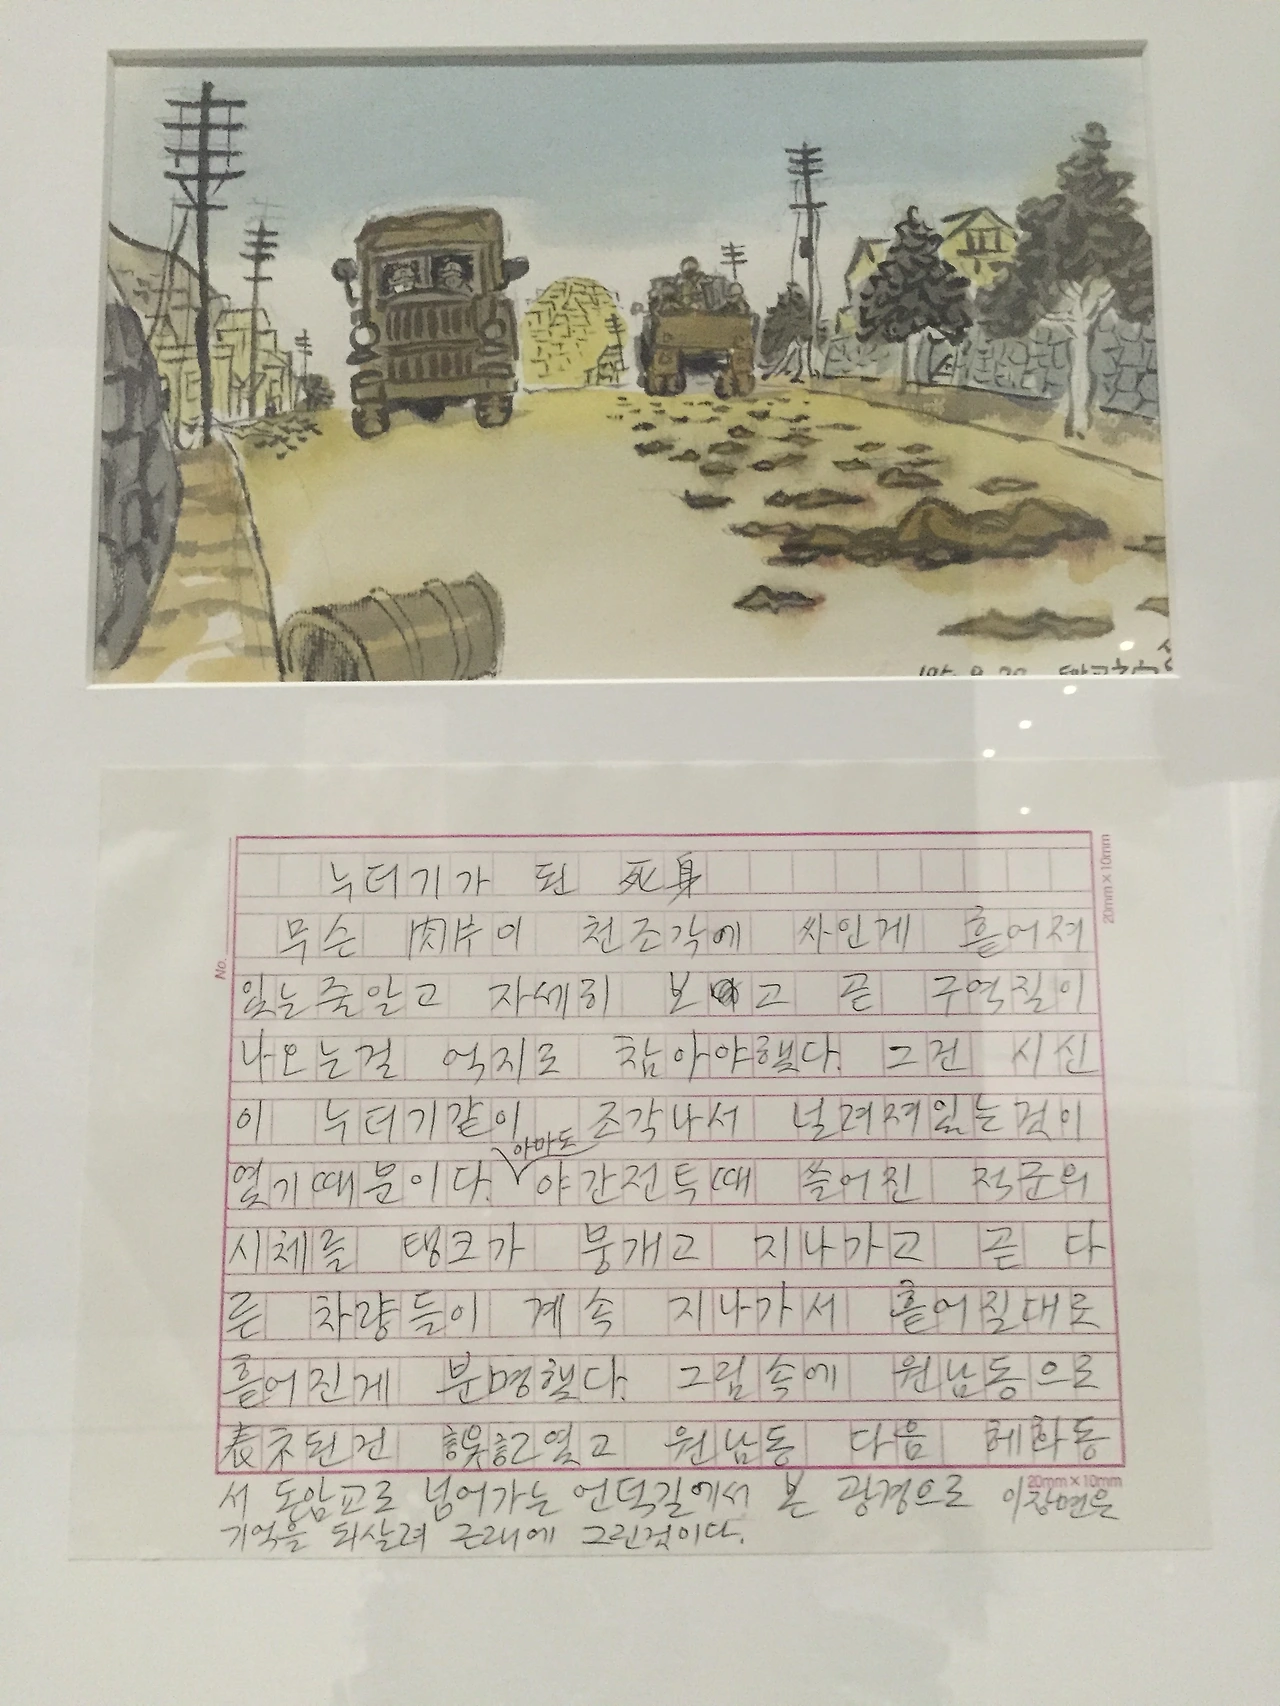 누더기가 된 死身
무슨 肉片이 천조각에 싸인게 흩어져
있는줄알고 자세히 보고 곧 구역질이
나오는걸 억지로 참아야했다. 그건 시신
이 누더기같이 조각나서 널려져있는것이
아마도
였기때문이다. 야간전투때 쓸어진 적군의
시체를 탱크가 뭉개고 지나가고 곧 다
른 차량들이 계속 지나가서 흩어질대로
흩어진게 분명했다. 그림속에 원남동으로
表示된건 誤記였고 원남동 다음 혜화동
서 동암교로 넘어가는 언덕길에서 본 광경으로 이장면은
기억을 되살려 근래에 그린것이다.
No.
20mm×10mm
20mm×10mm